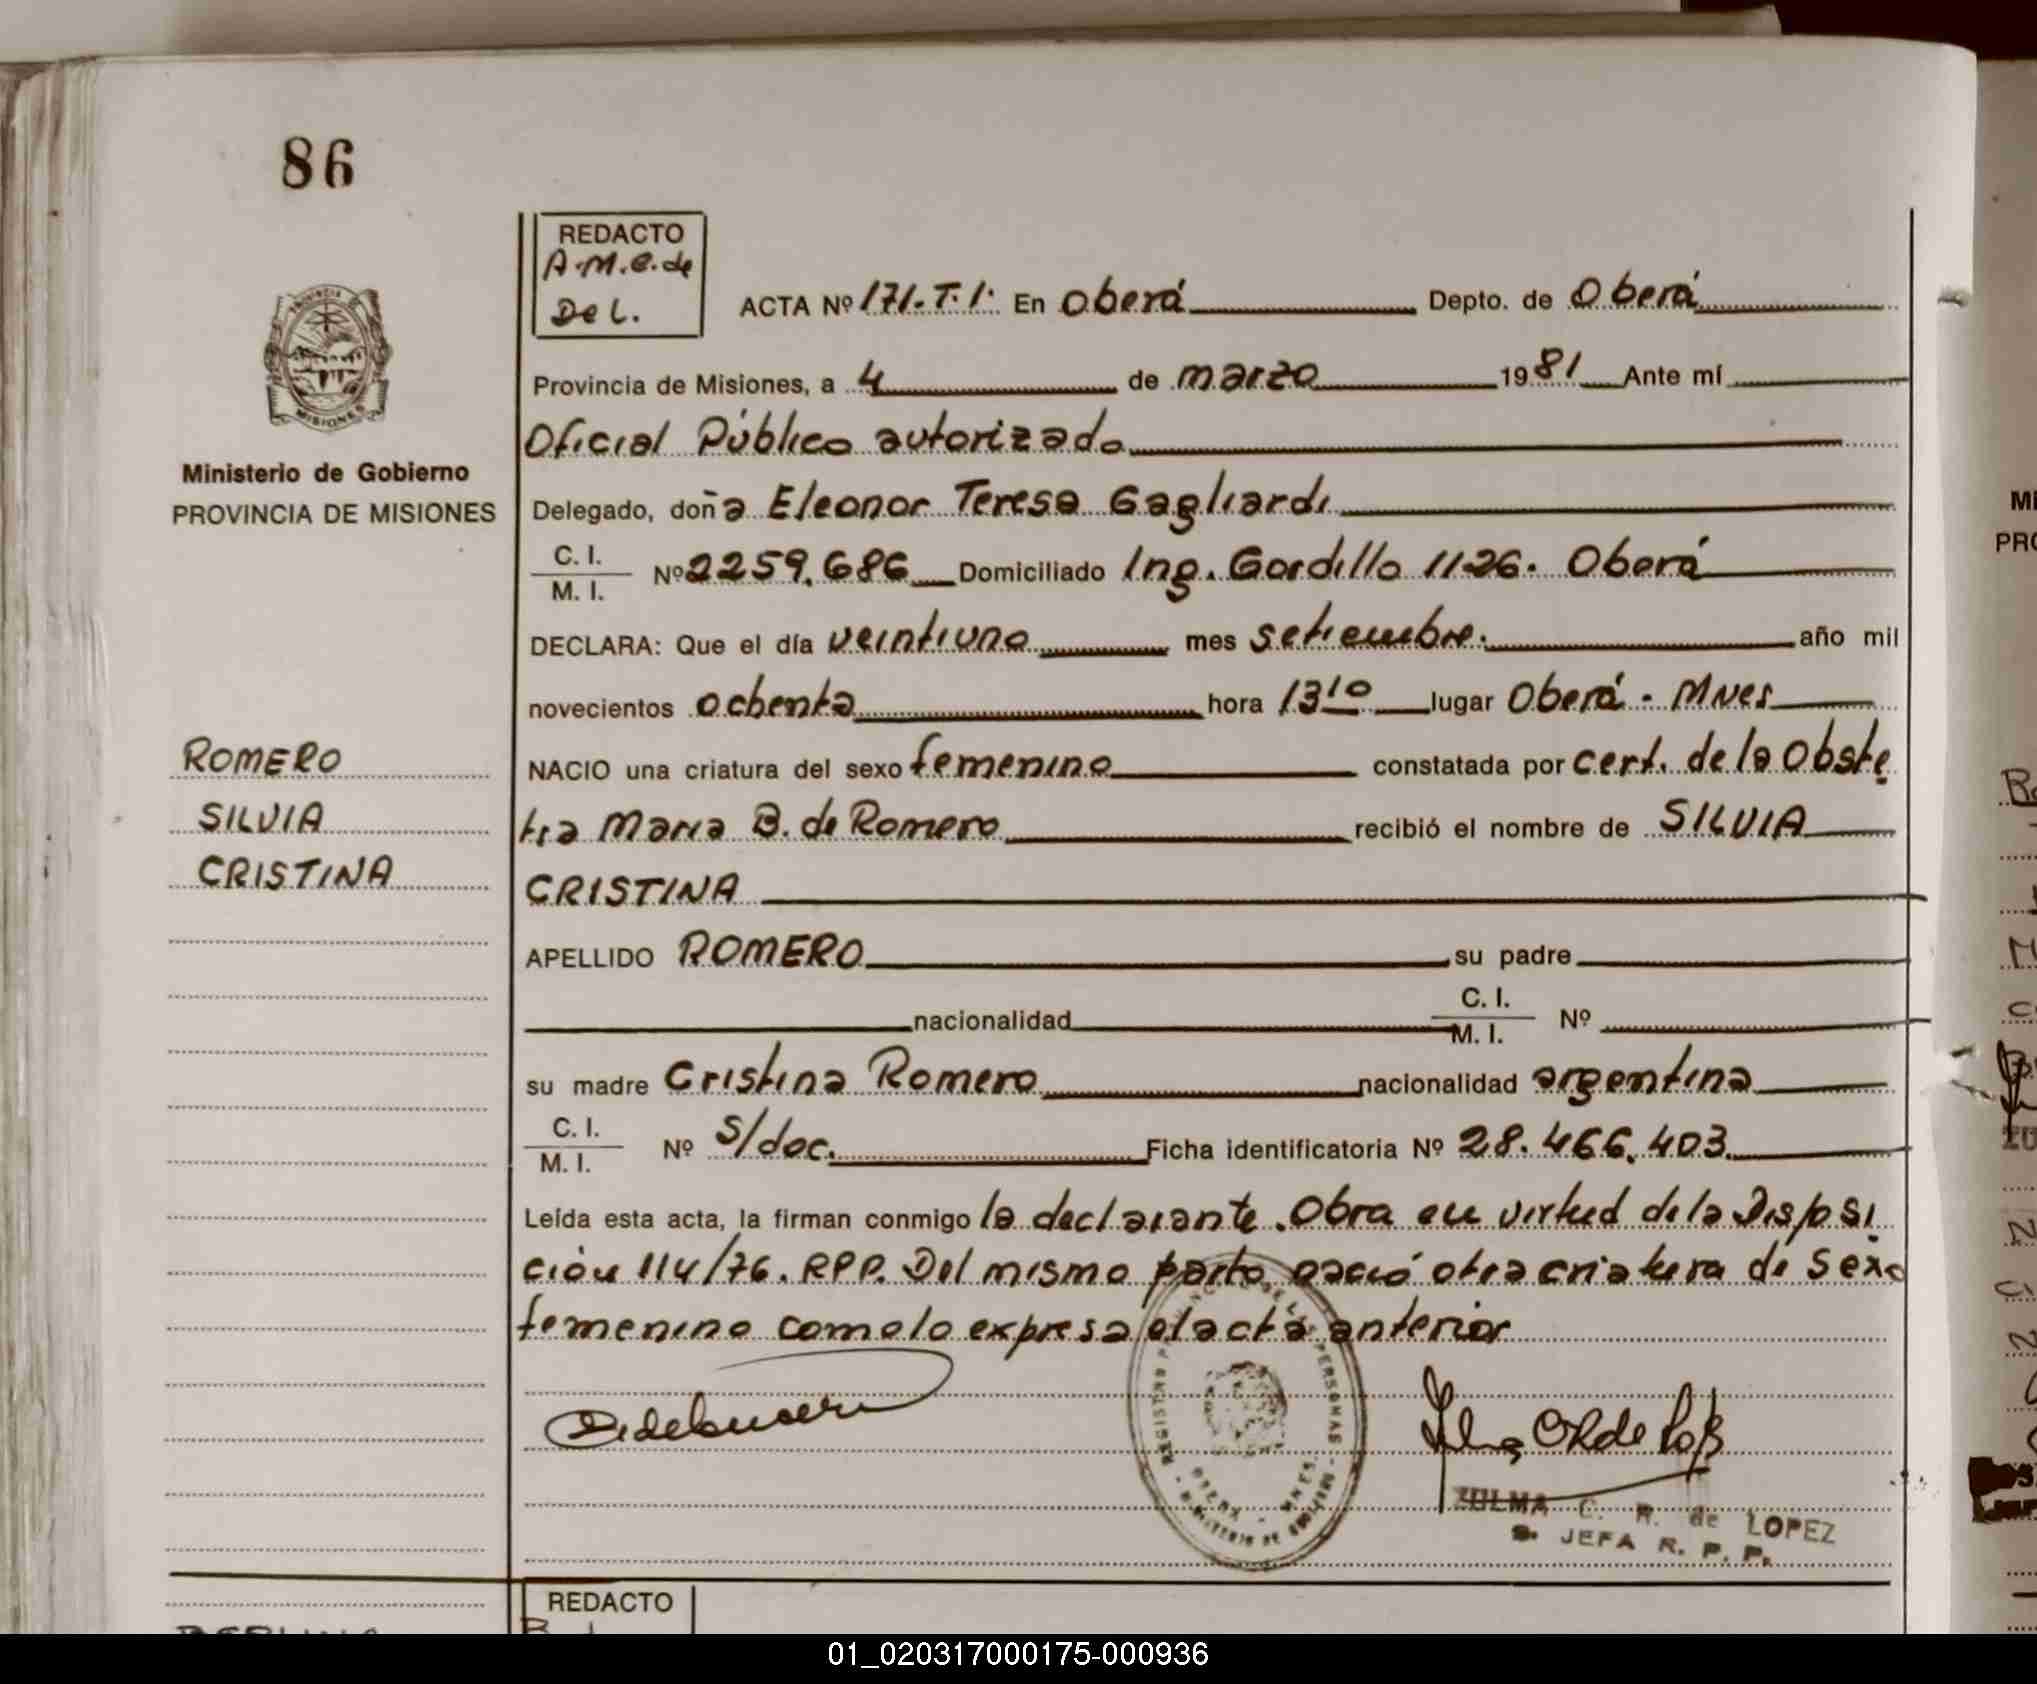 86
REDACTO
A.M.C. de
De L.
ACTA Nº 171.T.1. En Oberá Depto. de Oberá
Provincia de Misiones, a 4 de marzo 1981 Ante mí
Oficial Público autorizado
Ministerio de Gobierno
PROVINCIA DE MISIONES
Delegado, doña Eleonor Teresa Gagliardi
C. I.
M. I. Nº 2259.686 Domiciliado Ing. Gordillo 1126. Oberá
DECLARA: Que el día veintiuno mes setiembre. año mil
novecientos ochenta hora 13 10 lugar Oberá - Mnes
ROMERO
SILVIA
CRISTINA
NACIO una criatura del sexo femenino constatada por cert. de la Obste
tra Maria B. de Romero recibió el nombre de SILVIA
CRISTINA
APELLIDO ROMERO su padre
nacionalidad C. I.
M. I. Nº
su madre Cristina Romero nacionalidad argentina
C. I.
M. I. Nº s/doc. Ficha identificatoria Nº 28.466.403.
Leída esta acta, la firman conmigo la declarante. Obra en virtud de la Disposi
ción 114/76. RPP. Del mismo parto nació otra criatura de sexo
femenino como lo expresa el acta anterior
ZULMA C. R. de LOPEZ
S. JEFA R. P. P.
REDACTO
01_020317000175-000936